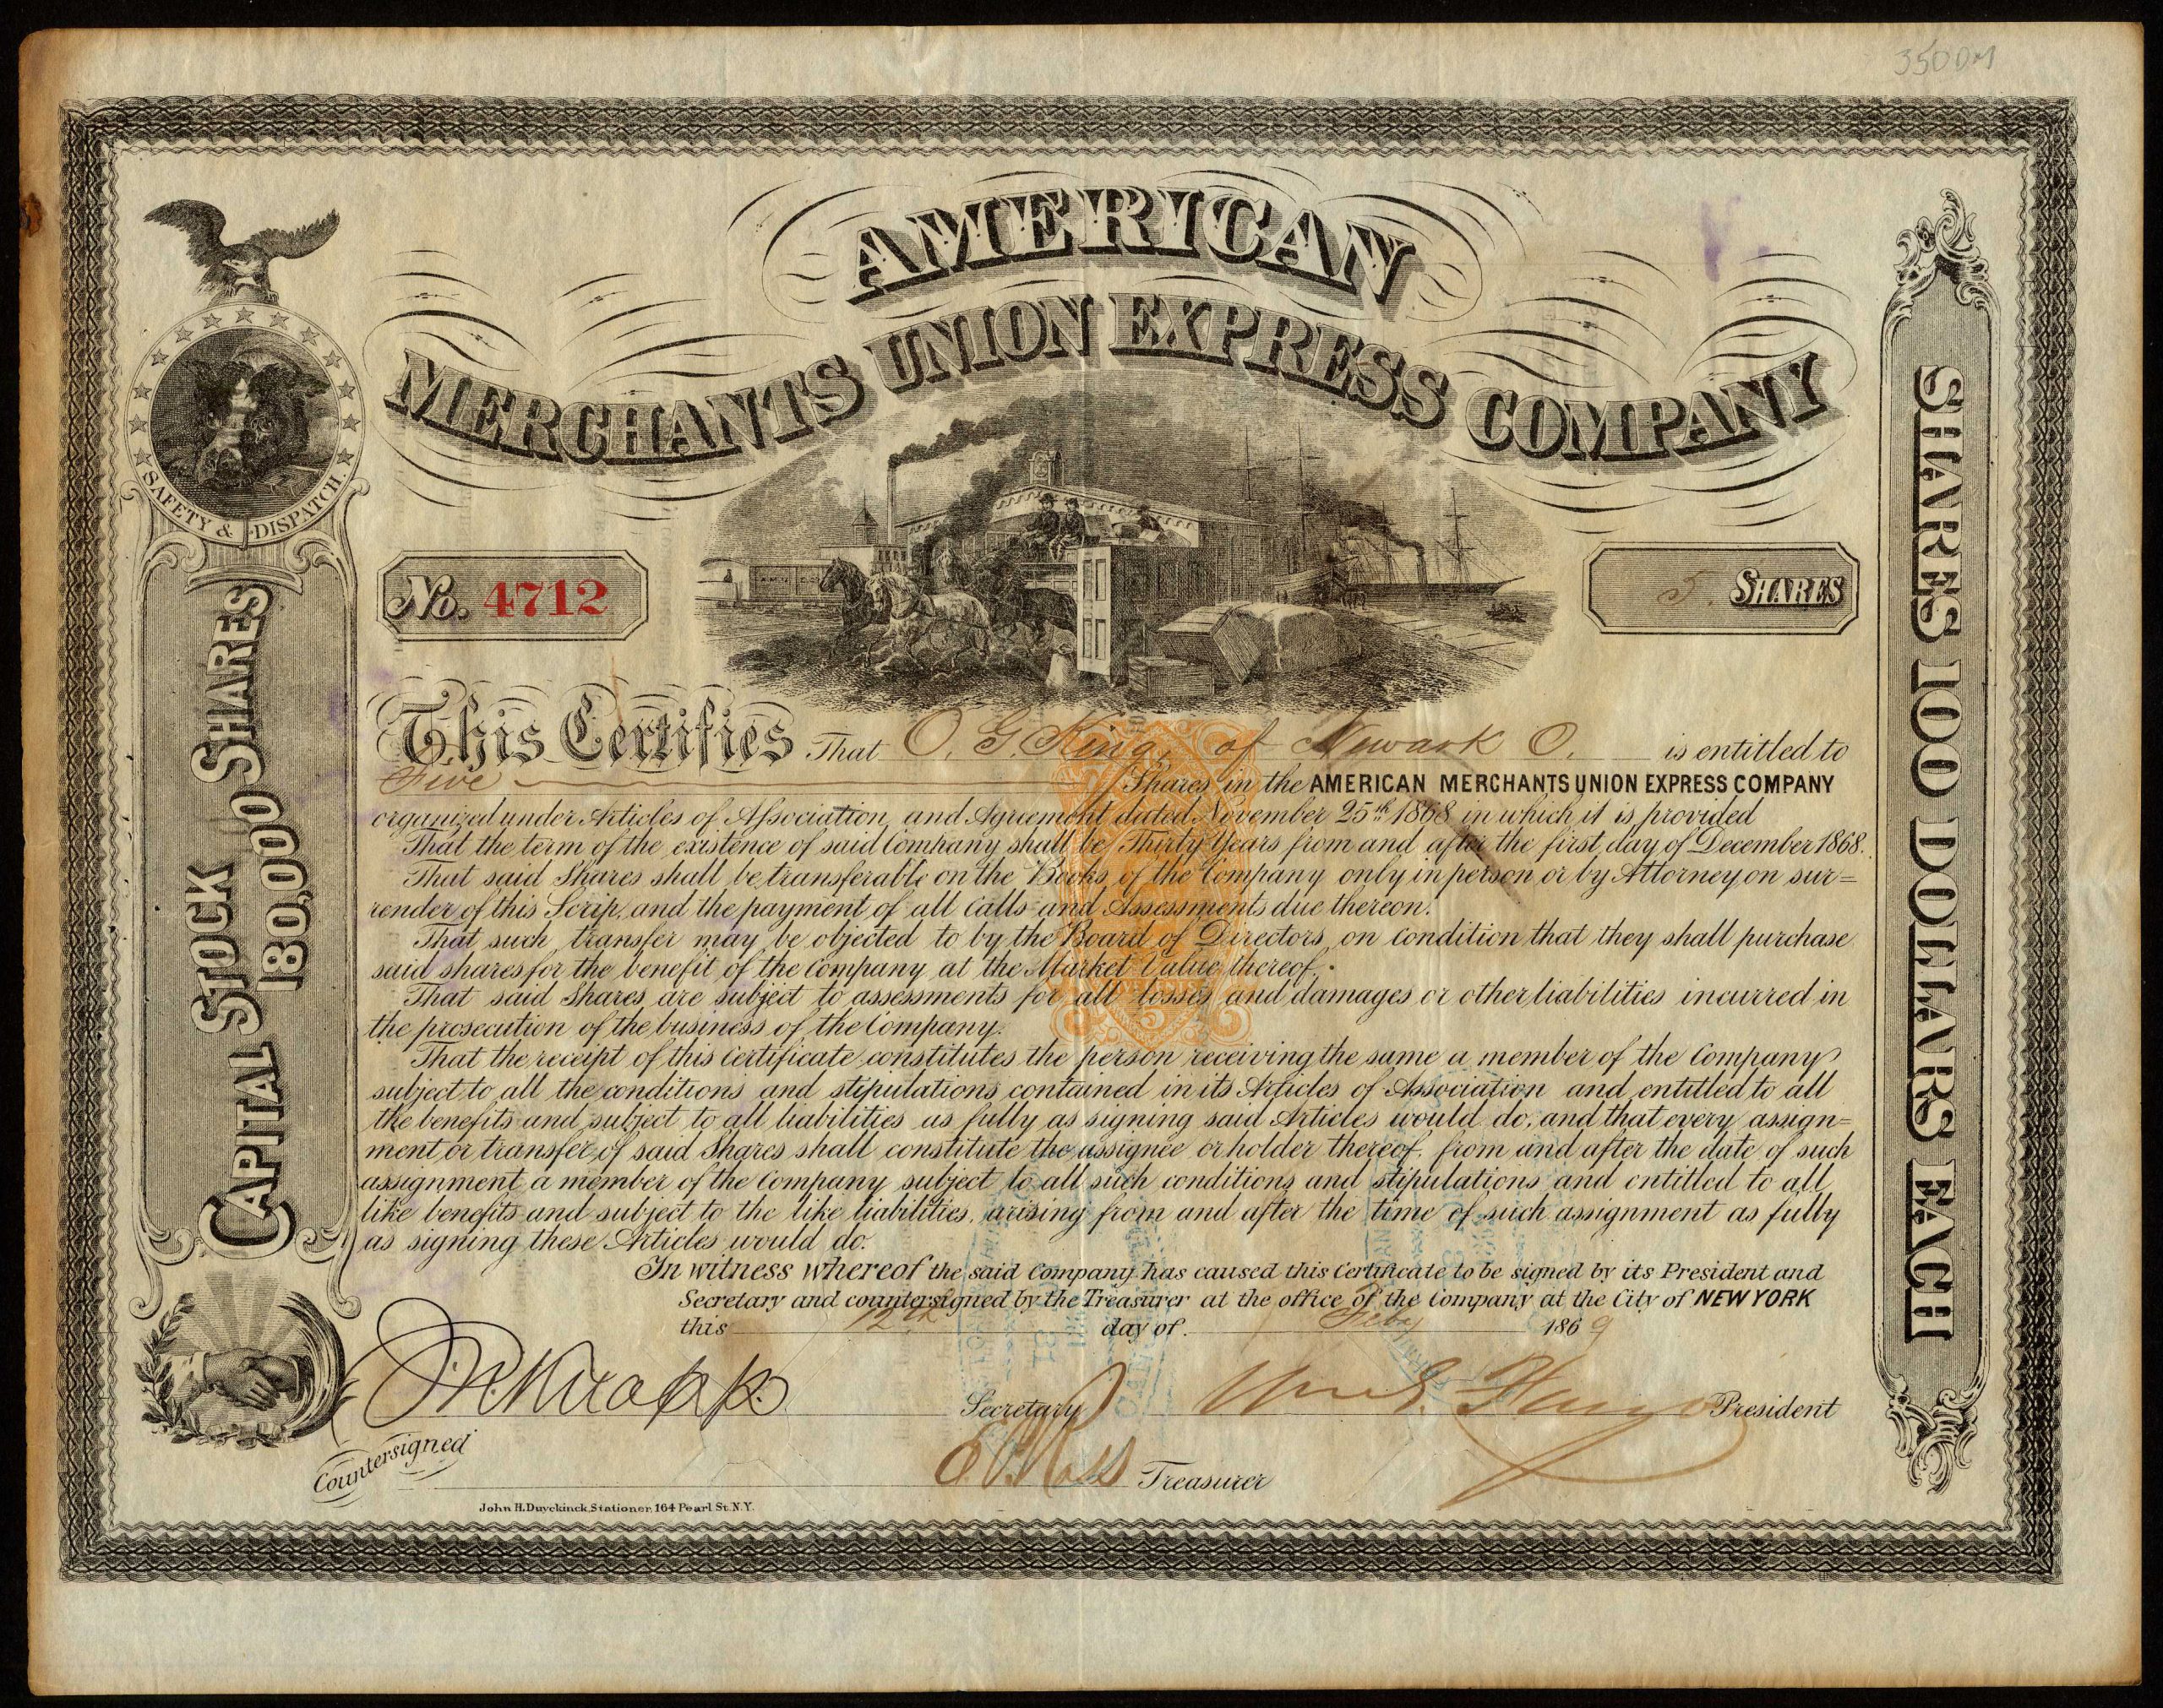 3500M
AMERICAN
MERCHANTS UNION EXPRESS COMPANY
SAFETY & DISPATCH.
CAPITAL STOCK
180,000 SHARES
SHARES 100 DOLLARS EACH
No. 4712
5. SHARES
This Certifies That O. G. King, of Newark O. is entitled to
Five Shares in the AMERICAN MERCHANTS UNION EXPRESS COMPANY
organized under Articles of Association, and Agreement dated November 25th 1868 in which it is provided
That the term of the existence of said Company shall be Thirty Years from and after the first day of December 1868.
That said Shares shall be transferable on the Books of the Company only in person or by Attorney on sur=
render of this Scrip, and the payment of all Calls and Assessments due thereon.
That such transfer may be objected to by the Board of Directors, on condition that they shall purchase
said shares for the benefit of the Company at the Market Value thereof.
That said Shares are subject to assessments for all losses and damages or other liabilities incurred in
the prosecution of the business of the Company.
That the receipt of this Certificate constitutes the person receiving the same a member of the Company
subject to all the conditions and stipulations contained in its Articles of Association and entitled to all
the benefits and subject to all liabilities as fully as signing said Articles would do, and that every assign=
ment or transfer of said Shares shall constitute the assignee or holder thereof, from and after the date of such
assignment a member of the Company subject to all such conditions and stipulations and entitled to all
like benefits and subject to the like liabilities, arising from and after the time of such assignment as fully
as signing these Articles would do.
In witness whereof the said Company has caused this Certificate to be signed by its President and
Secretary and countersigned by the Treasurer at the office of the Company at the City of NEW YORK
this 12th day of Feby 1869
J. N. Knapp Secretary Wm G. Fargo President
Countersigned
Treasurer
John H. Duyckinck, Stationer, 164 Pearl St. N.Y.